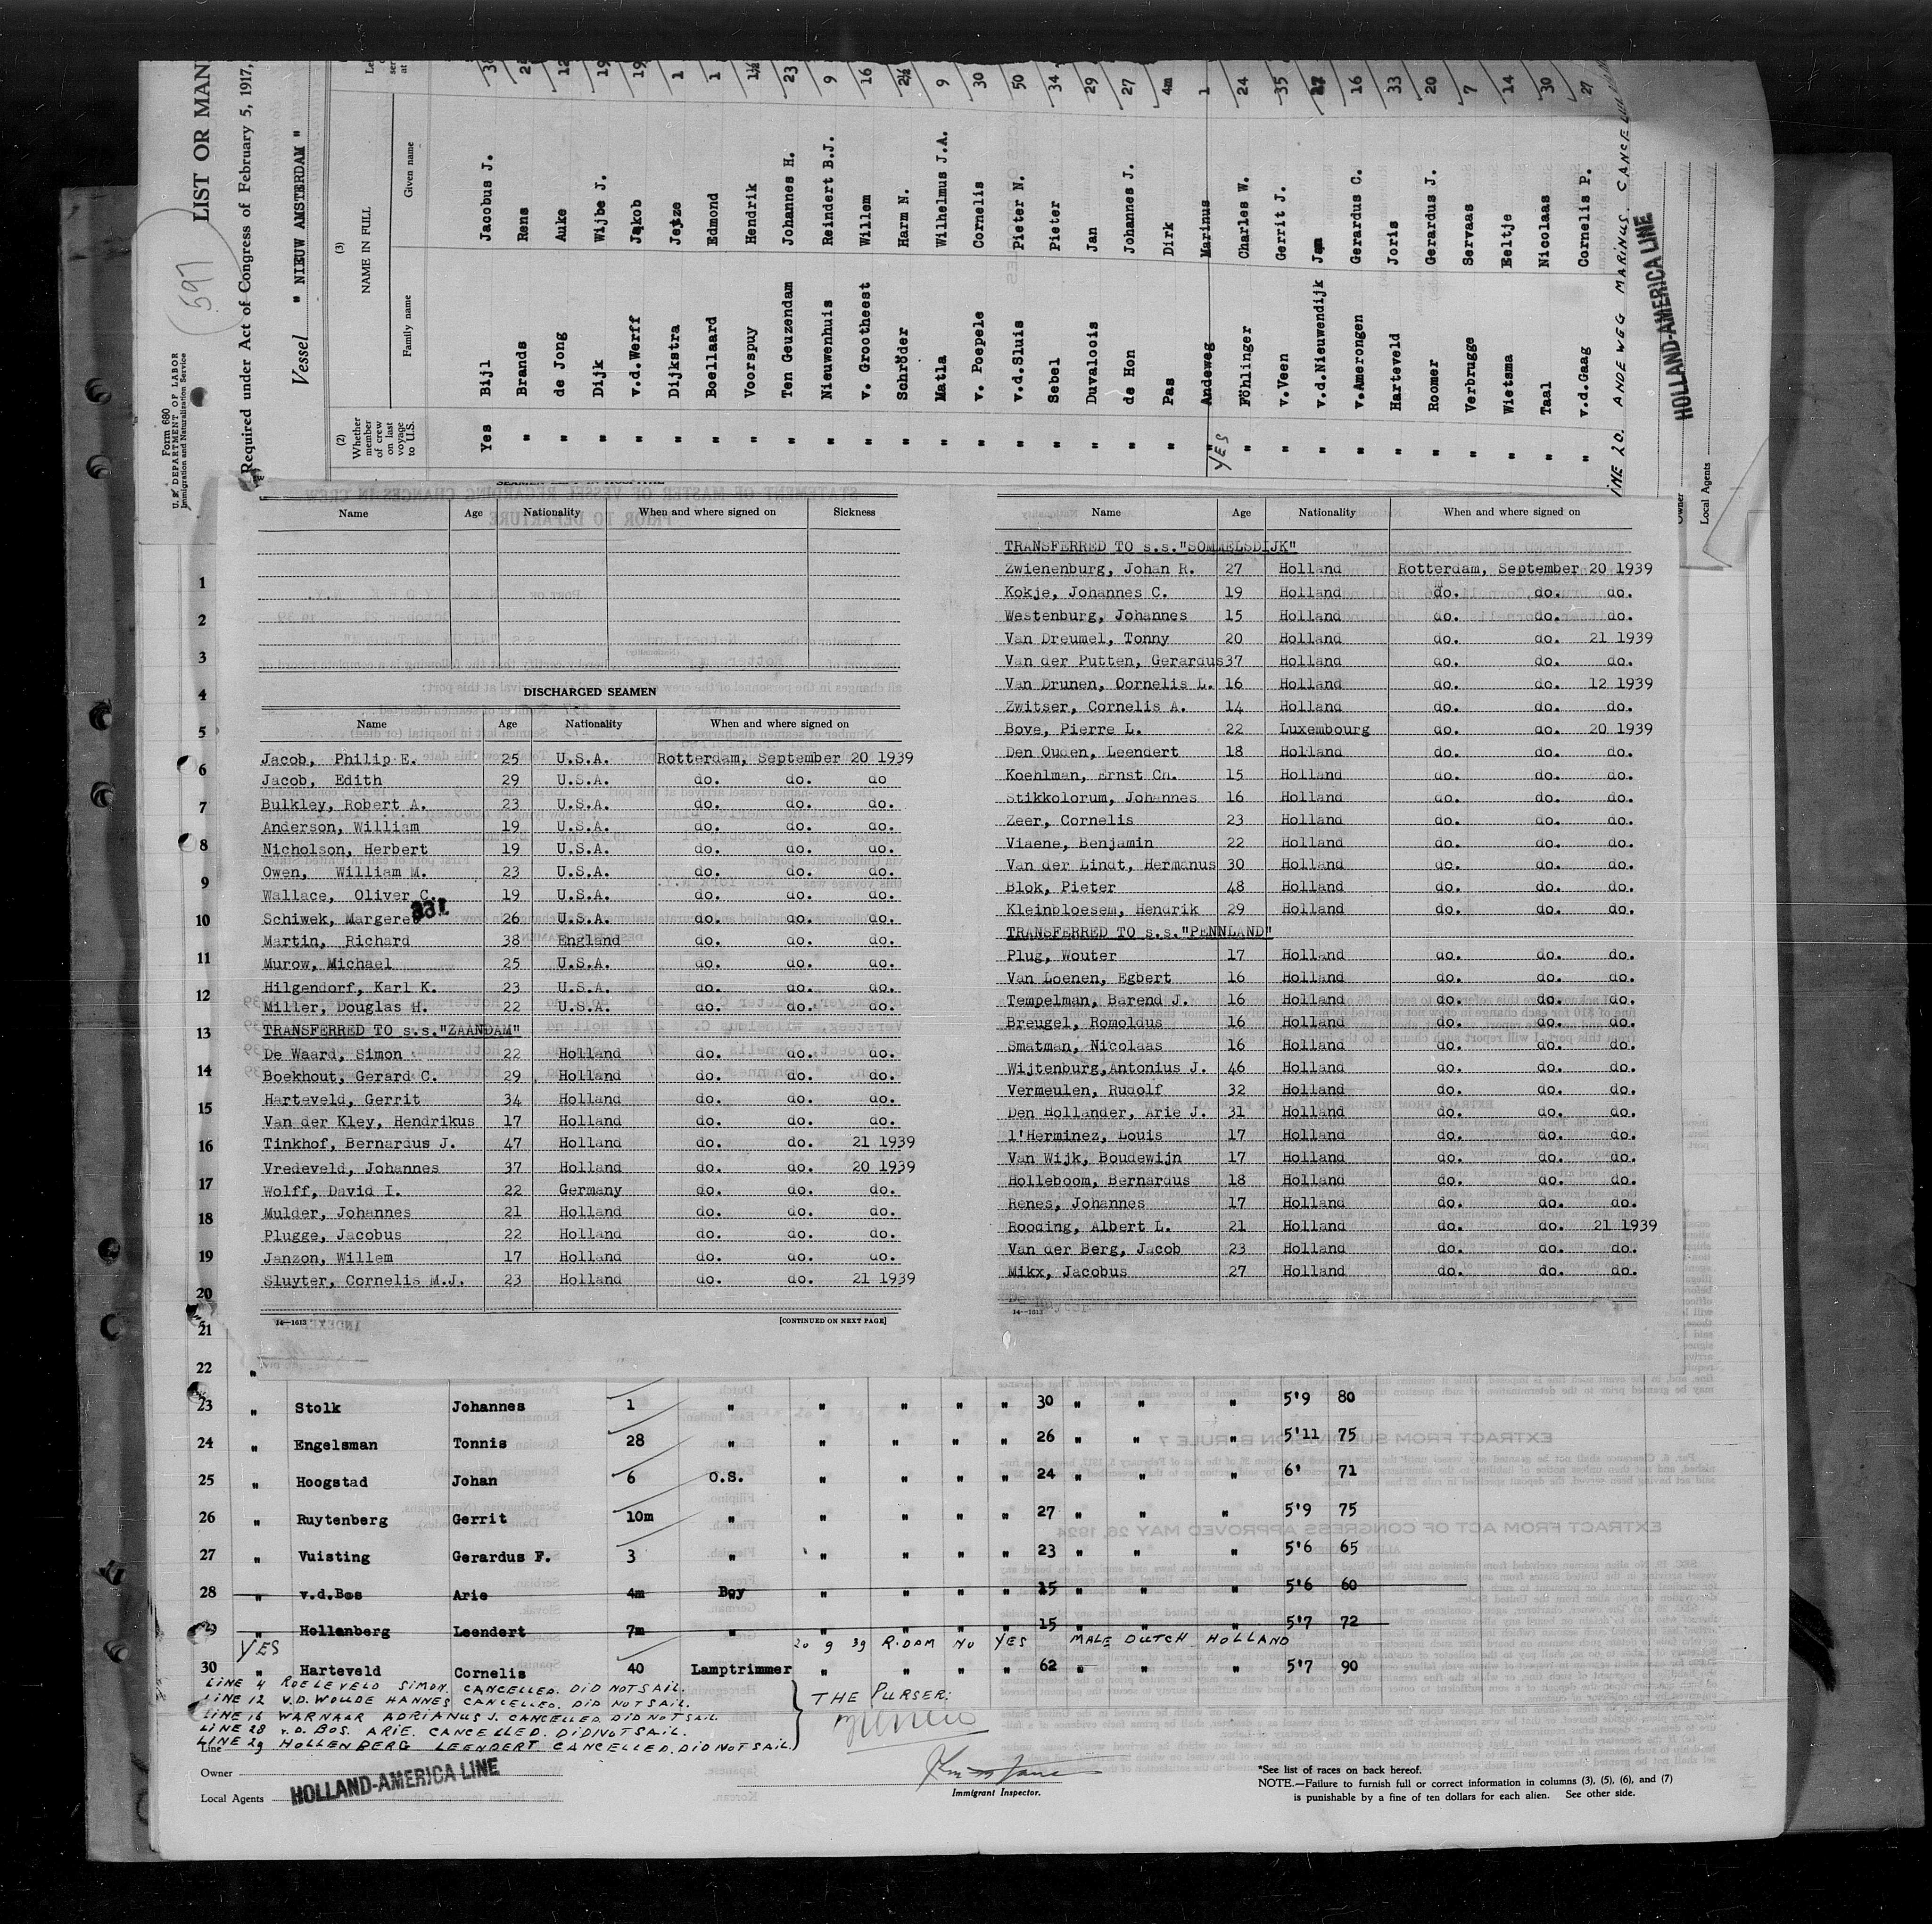 LIST OR MAN
597
Form 680
U. S. DEPARTMENT OF LABOR
Immigration and Naturalization Service
Required under Act of Congress of February 5, 1917,
Vessel " NIEUW AMSTERDAM "
(2) Whether member of crew on last voyage to U.S.
(3) NAME IN FULL
Family name Given name
Yes Bijl Jacobus J.
" Brands Rens
" de Jong Auke 12
" Dijk Wijbe J. 19
" v.d.Werff Jakob 19
" Dijkstra Jetze 1
" Boellaard Edmond 1
" Voorspuy Hendrik 1½
" Ten Geuzendam Johannes H. 23
" Nieuwenhuis Reindert B.J. 9
" v. Grootheest Willem 16
" Schröder Harm N. 2½
" Matla Wilhelmus J.A. 9
" v. Poepele Cornelis 30
" v.d.Sluis Pieter N. 50
" Sebel Pieter 34
" Duvaloois Jan 29
" de Hon Johannes J. 27
" Pas Dirk 4m
" Andeweg Marinus 1
YES
" Föhlinger Charles W. 24
" v.Veen Gerrit J. 35
" v.d.Nieuwendijk Jan
" v.Amerongen Gerardus C. 16
" Harteveld Joris 33
" Roomer Gerardus J. 20
" Verbrugge Servaas 7
" Wietsma Eeltje 14
" Taal Nicolaas 30
" v.d.Gaag Cornelis P. 27
INE 20. ANDEWEG MARINUS.
HOLLAND-AMERICA LINE
Owner
Local Agents
SEAMEN LEFT IN HOSPITAL
Name Age Nationality When and where signed on Sickness
DISCHARGED SEAMEN
Name Age Nationality When and where signed on
Jacob, Philip E. 25 U.S.A. Rotterdam, September 20 1939
Jacob, Edith 29 U.S.A. do. do. do
Bulkley, Robert A. 23 U.S.A. do. do. do.
Anderson, William 19 U.S.A. do. do. do.
Nicholson, Herbert 19 U.S.A. do. do. do.
Owen, William M. 23 U.S.A. do. do. do.
Wallace, Oliver C. 19 U.S.A. do. do. do.
Schiwek, Margeret 26 U.S.A. do. do. do.
Martin, Richard 38 England do. do. do.
Murow, Michael 25 U.S.A. do. do. do.
Hilgendorf, Karl K. 23 U.S.A. do. do. do.
Miller, Douglas H. 22 U.S.A. do. do. do.
TRANSFERRED TO s.s."ZAANDAM"
De Waard, Simon 22 Holland do. do. do.
Boekhout, Gerard C. 29 Holland do. do. do.
Harteveld, Gerrit 34 Holland do. do. do.
Van der Kley, Hendrikus 17 Holland do. do. do.
Tinkhof, Bernardus J. 47 Holland do. do. 21 1939
Vredeveld, Johannes 37 Holland do. do. 20 1939
Wolff, David I. 22 Germany do. do. do.
Mulder, Johannes 21 Holland do. do. do.
Plugge, Jacobus 22 Holland do. do. do.
Janzon, Willem 17 Holland do. do. do.
Sluyter, Cornelis M.J. 23 Holland do. do. 21 1939
14—1613 [CONTINUED ON NEXT PAGE]
Name Age Nationality When and where signed on
TRANSFERRED TO s.s."SOMMELSDIJK"
Zwienenburg, Johan R. 27 Holland Rotterdam, September 20 1939
Kokje, Johannes C. 19 Holland do. do. do.
Westenburg, Johannes 15 Holland do. do. do.
Van Dreumel, Tonny 20 Holland do. do. 21 1939
Van der Putten, Gerardus 37 Holland do. do. do.
Van Drunen, Cornelis L. 16 Holland do. do. 12 1939
Zwitser, Cornelis A. 14 Holland do. do. do.
Bove, Pierre L. 22 Luxembourg do. do. 20 1939
Den Ouden, Leendert 18 Holland do. do. do.
Koehlman, Ernst Ch. 15 Holland do. do. do.
Stikkolorum, Johannes 16 Holland do. do. do.
Zeer, Cornelis 23 Holland do. do. do.
Viaene, Benjamin 22 Holland do. do. do.
Van der Lindt, Hermanus 30 Holland do. do. do.
Blok, Pieter 48 Holland do. do. do.
Kleinbloesem, Hendrik 29 Holland do. do. do.
TRANSFERRED TO s.s."PENNLAND"
Plug, Wouter 17 Holland do. do. do.
Van Loenen, Egbert 16 Holland do. do. do.
Tempelman, Barend J. 16 Holland do. do. do.
Breugel, Romoldus 16 Holland do. do. do.
Smatman, Nicolaas 16 Holland do. do. do.
Wijtenburg,Antonius J. 46 Holland do. do. do.
Vermeulen, Rudolf 32 Holland do. do. do.
Den Hollander, Arie J. 31 Holland do. do. do.
l'Herminez, Louis 17 Holland do. do. do.
Van Wijk, Boudewijn 17 Holland do. do. do.
Holleboom, Bernardus 18 Holland do. do. do.
Renes, Johannes 17 Holland do. do. do.
Rooding, Albert L. 21 Holland do. do. 21 1939
Van der Berg, Jacob 23 Holland do. do. do.
Mikx, Jacobus 27 Holland do. do. do.
14—1613
1
2
3
4
5
6
7
8
9
10
11
12
13
14
15
16
17
18
19
20
21
22 "
23 " Stolk Johannes 1 " " " " " 30 " " " 5'9 80
24 " Engelsman Tonnis 28 " " " " " 26 " " " 5'11 75
25 " Hoogstad Johan 6 O.S. " " " " 24 " " " 6' 71
26 " Ruytenberg Gerrit 10m " " " " " 27 " " " 5'9 75
27 " Vuisting Gerardus F. 3 " " " " " 23 " " " 5'6 65
28 " v.d.Bos Arie 4m Boy " " " " 15 " " " 5'6 60
29 " Hollenberg Leendert 7m " " " " " 15 " " " 5'7 72
YES 20 9 39 R.DAM NO YES MALE DUTCH HOLLAND
30 " Harteveld Cornelis 40 Lamptrimmer " " " " 62 " " " 5'7 90
LINE 4 ROELEVELD SIMON. CANCELLED. DID NOT SAIL.
LINE 12 V.D. WOUDE HANNES CANCELLED. DID NOT SAIL.
LINE 16 WARNAAR ADRIANUS J. CANCELLED DID NOT SAIL.
LINE 28 v.D. BOS. ARIE. CANCELLED. DID NOT SAIL.
LINE 29 HOLLENBERG LEENDERT CANCELLED. DID NOT SAIL.
THE PURSER:
Line
Owner
Local Agents HOLLAND-AMERICA LINE
Immigrant Inspector.
*See list of races on back hereof.
NOTE.—Failure to furnish full or correct information in columns (3), (5), (6), and (7)
is punishable by a fine of ten dollars for each alien. See other side.